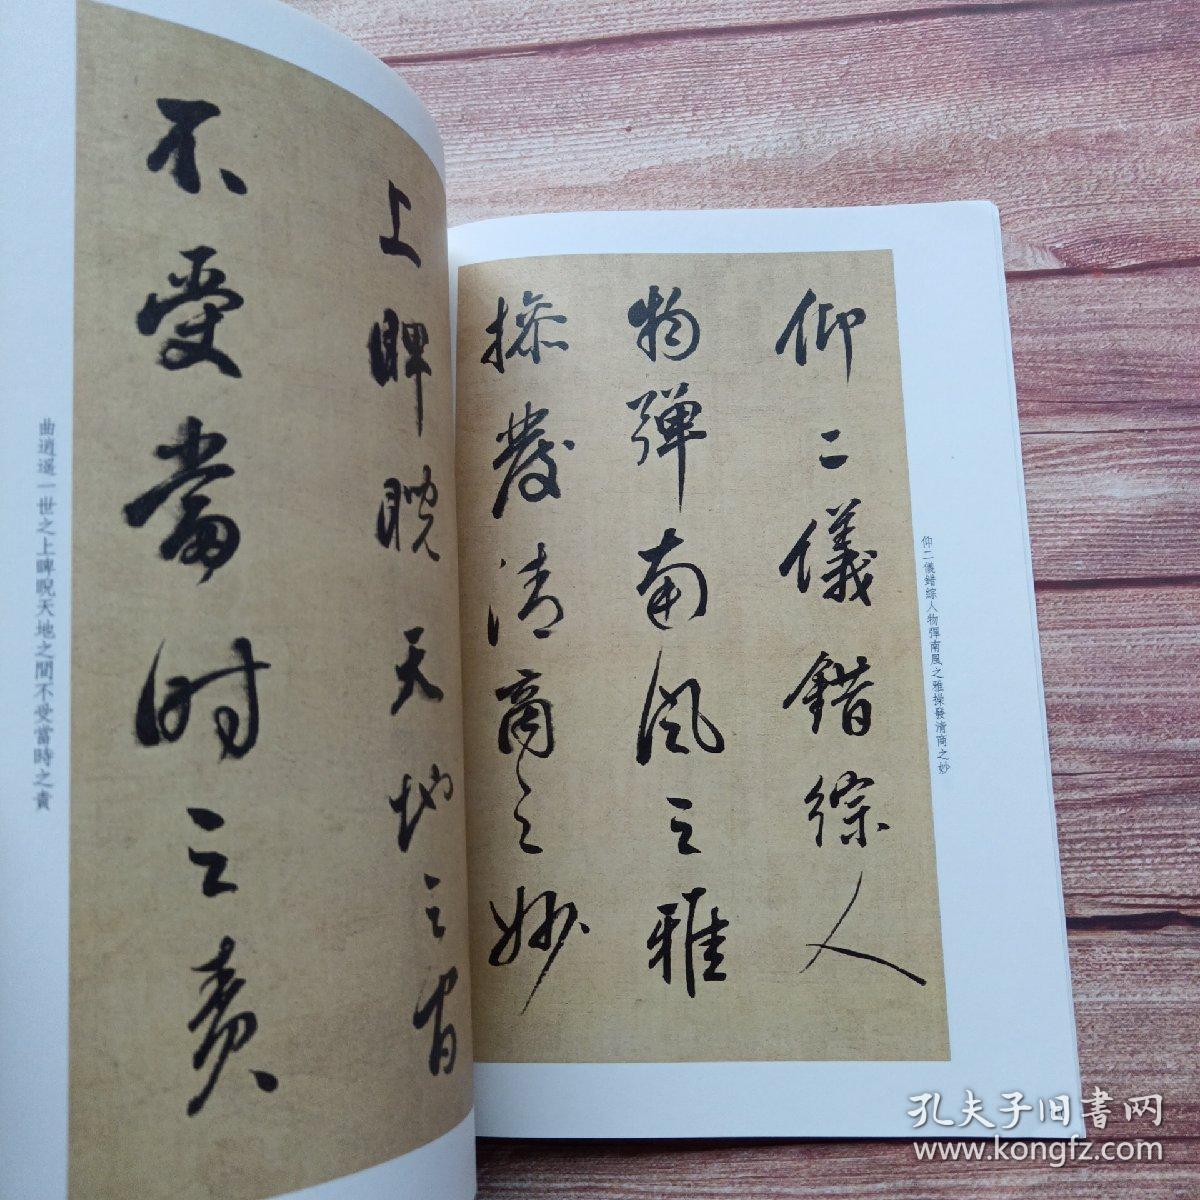 仰二儀錯綜人
物彈南風之雅
操發清商之妙
仰二儀錯綜人物彈南風之雅操發清商之妙
上睥睨天地之間
不受當时之責
曲逍遥一世之上睥睨天地之間不受當時之責
孔夫子旧書网
www.kongfz.com